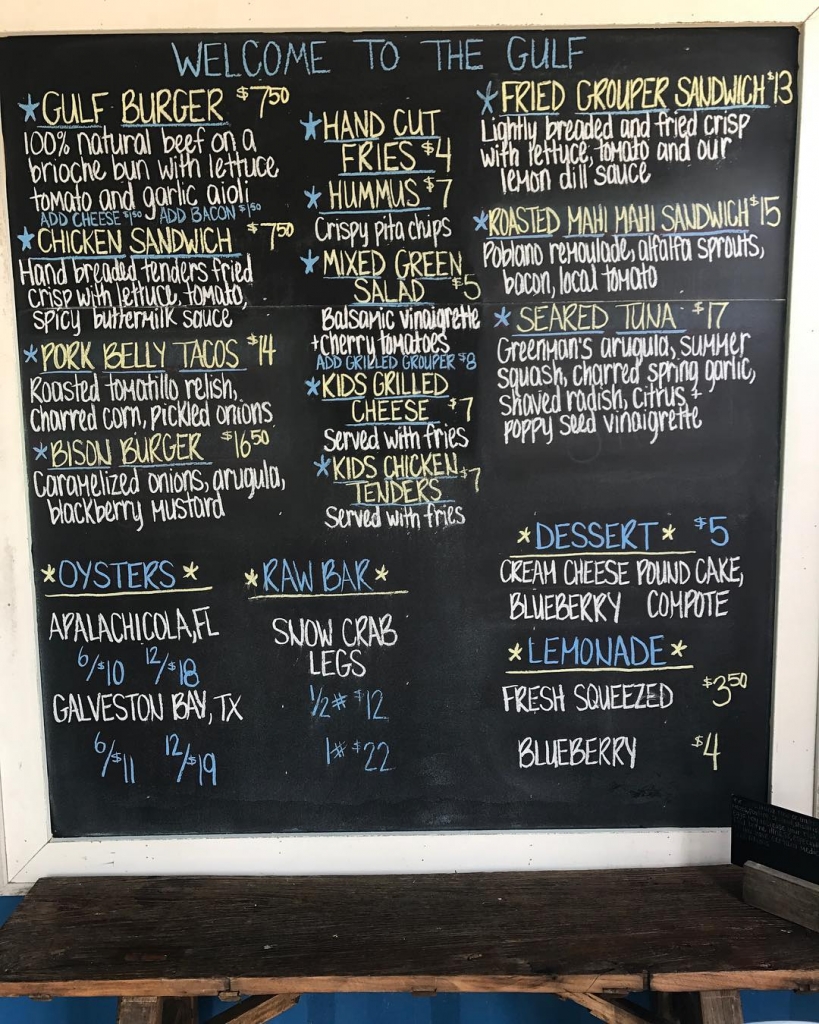 WELCOME TO THE GULF
*GULF BURGER $7.50
100% natural beef on a
brioche bun with lettuce
tomato and garlic aioli
ADD CHEESE $1.50 ADD BACON $1.50
*CHICKEN SANDWICH $7.50
Hand breaded tenders fried
crisp with lettuce, tomato,
spicy buttermilk sauce
*PORK BELLY TACOS $14
Roasted tomatillo relish,
charred corn, pickled onions
*BISON BURGER $16.50
Caramelized onions, arugula,
blackberry mustard
*HAND CUT
FRIES $4
*HUMMUS $7
Crispy pita chips
*MIXED GREEN
SALAD $5
Balsamic vinaigrette
+cherry tomatoes
ADD GRILLED GROUPER $8
*KIDS GRILLED
CHEESE $7
Served with fries
*KIDS CHICKEN
TENDERS $7
Served with fries
*FRIED GROUPER SANDWICH $13
Lightly breaded and fried crisp
with lettuce, tomato and our
lemon dill sauce
*ROASTED MAHI MAHI SANDWICH $15
Poblano remoulade, alfalfa sprouts,
bacon, local tomato
*SEARED TUNA $17
Greenman's arugula, summer
squash, charred spring garlic,
shaved radish, citrus +
poppy seed vinaigrette
*OYSTERS*
APALACHICOLA, FL
6/$10 12/$18
GALVESTON BAY, TX
6/$11 12/$19
*RAW BAR*
SNOW CRAB
LEGS
1/2# $12
1# $22
*DESSERT* $5
CREAM CHEESE POUND CAKE,
BLUEBERRY COMPOTE
*LEMONADE*
FRESH SQUEEZED $3.50
BLUEBERRY $4